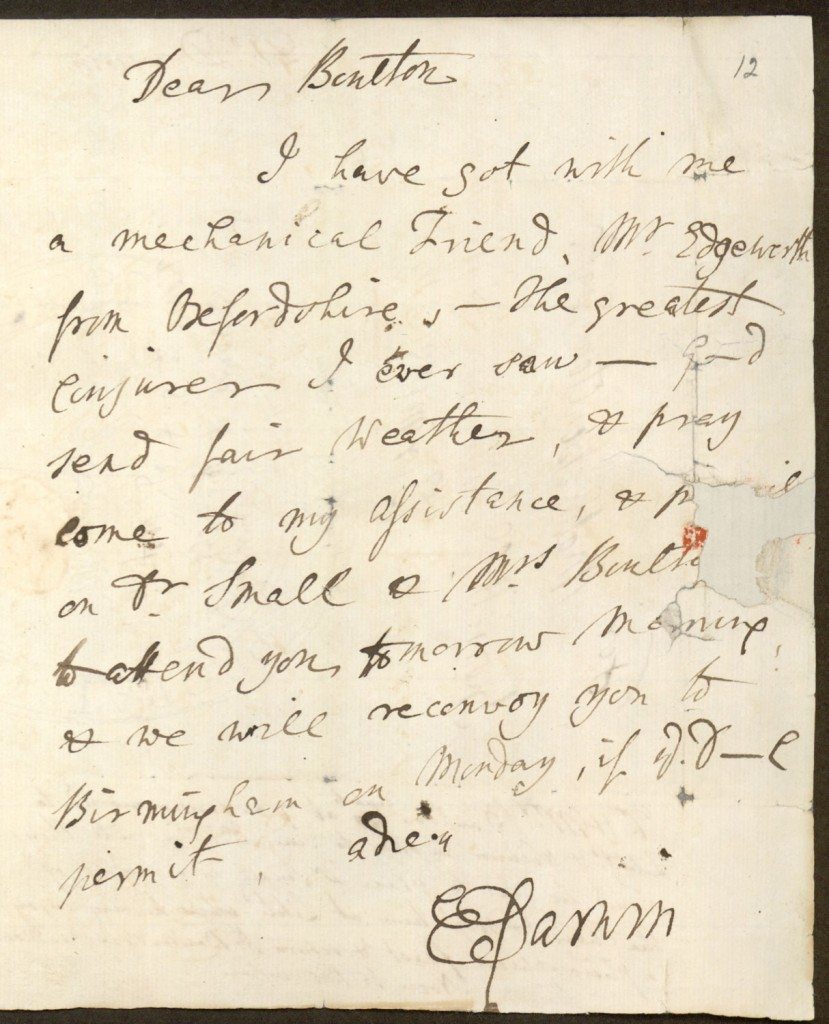 12
Dear Boulton
I have got with me
a mechanical Friend, Mr Edgeworth
from Oxfordshire, – The greatest
Conjurer I ever saw — G–d
send fair Weather, & pray
come to my assistance, & p il
on Dr Small & Mrs Boulto
to attend you tomorrow Morning,
& we will reconvoy you to
Birmingham on Monday, if ye. D—l
permit, adieu
E Darwin